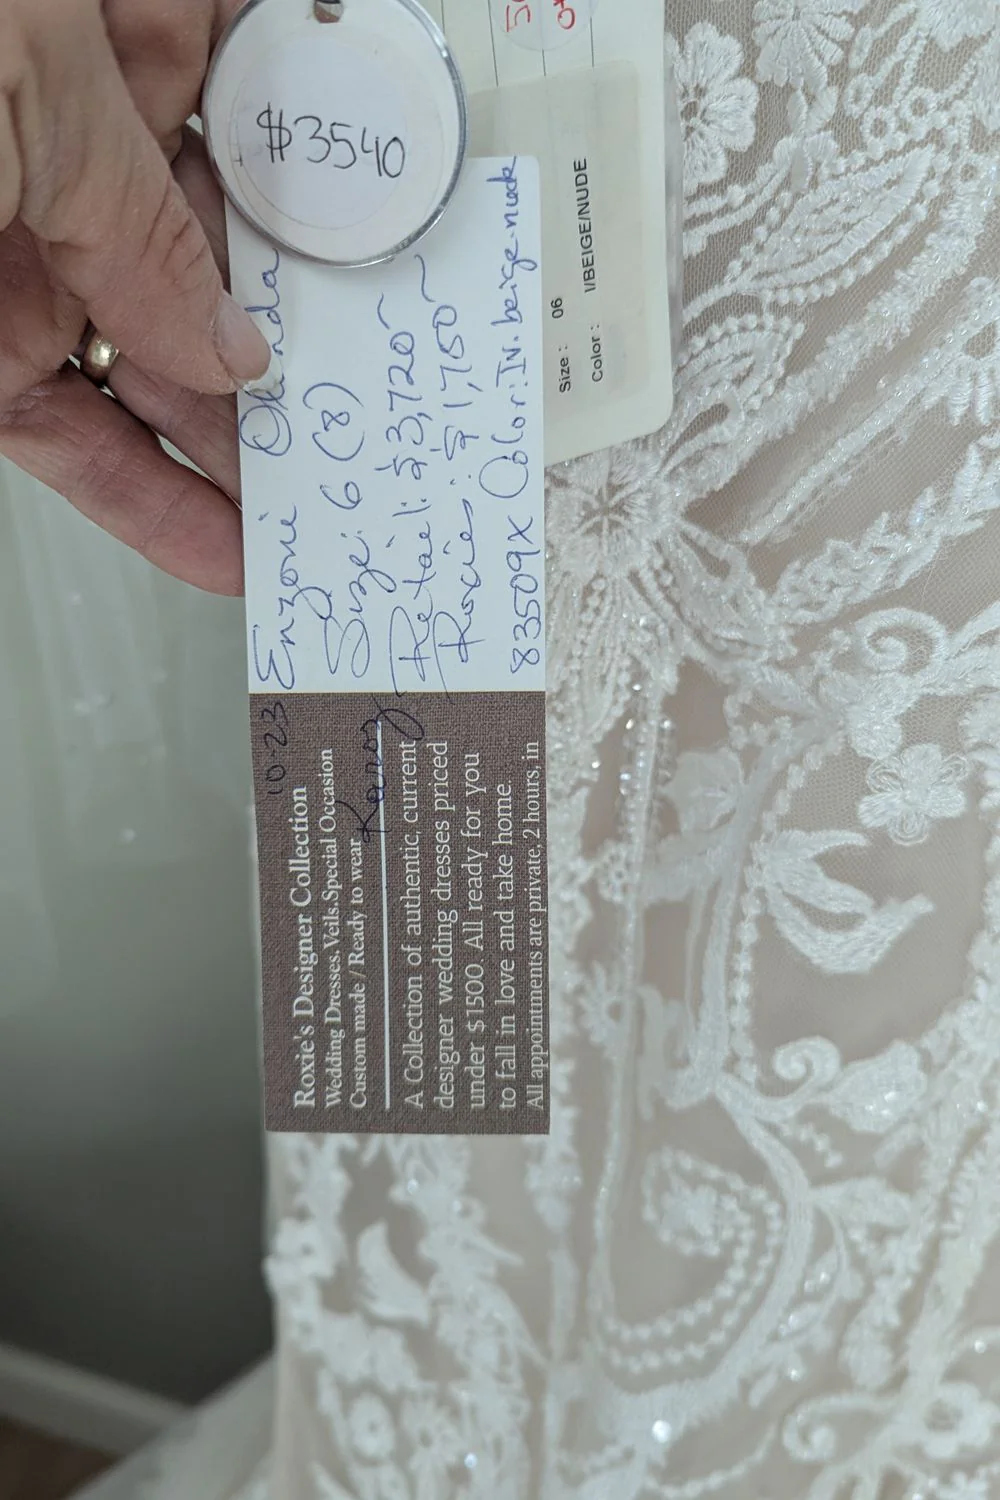 $3540
Enzoni
Size: 6 (8)
Retail: $3,720~
Roxies: $1,750~
83509X Color: Iv. beige. nude
Size : 06
Color : I/BEIGE/NUDE
10-23
Roxie's Designer Collection
Wedding Dresses. Veils. Special Occasion
Custom made / Ready to wear
A Collection of authentic, current
designer wedding dresses priced
under $1500. All ready for you
to fall in love and take home.
All appointments are private, 2 hours, in